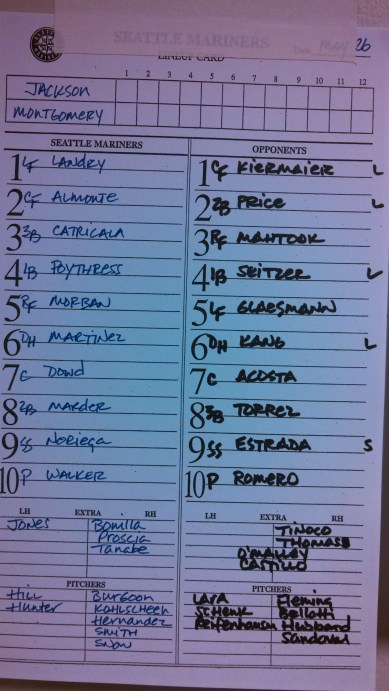 SEATTLE MARINERS
May 26
LINEUP CARD
1 2 3 4 5 6 7 8 9 10 11 12
JACKSON
MONTGOMERY
SEATTLE MARINERS OPPONENTS
1 LF LANDRY 1 CF KIERMAIER L
2 CF ALMONTE 2 2B PRICE L
3 3B CATRICALA 3 RF MAHTOOK
4 1B POYTHRESS 4 1B SEITZER L
5 RF MORBAN 5 LF GLAESMANN
6 DH MARTINEZ 6 DH KANG L
7 C DOWD 7 C ACOSTA
8 2B MARDER 8 3B TORREZ
9 SS NORIEGA 9 SS ESTRADA S
10 P WALKER 10 P ROMERO
LH EXTRA RH LH EXTRA RH
JONES Bonilla TINOCO
Proscia THOMAS
Tanabe O'MALLEY
CASTILLO
PITCHERS PITCHERS
Hill Burgoon LARA Fleming
Hunter KOHLSCHEEN SCHENK Bellatti
Hernandez Reifenhauser Hubbard
SMITH Sandoval
SNOW